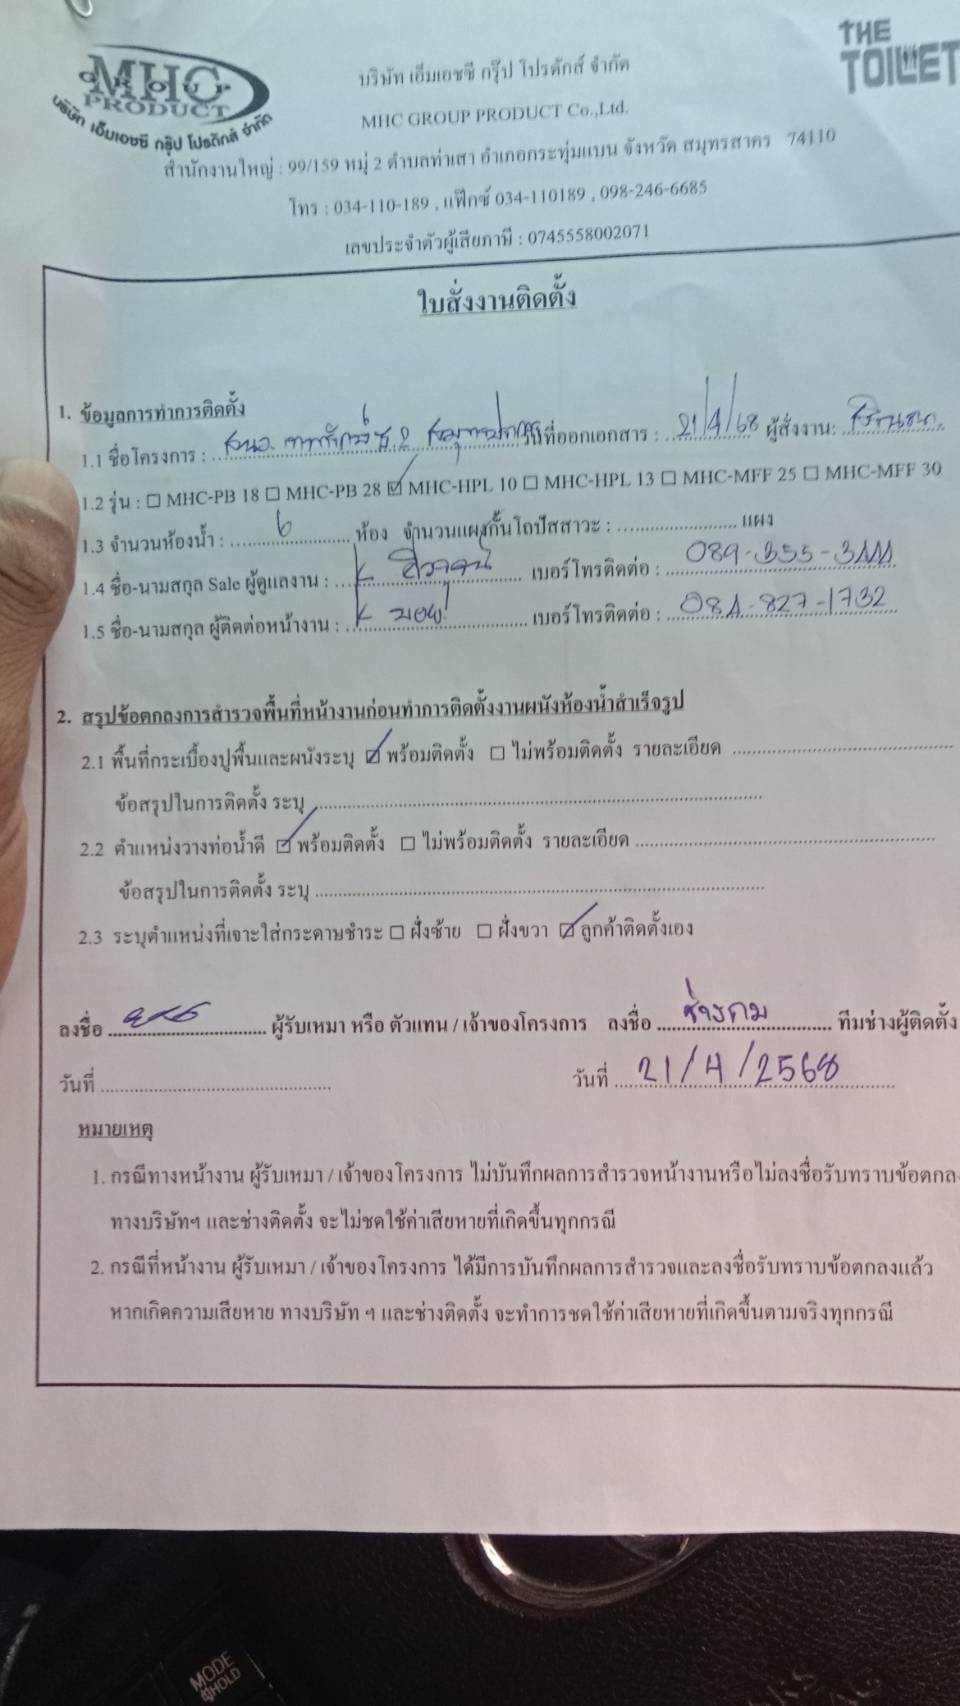 MHC
GROUP
PRODUCT
บริษัท เอ็มเอชซี กรุ๊ป โปรดักส์ จำกัด
THE
TOILET
บริษัท เอ็มเอชซี กรุ๊ป โปรดักส์ จำกัด
MHC GROUP PRODUCT Co.,Ltd.
สำนักงานใหญ่ : 99/159 หมู่ 2 ตำบลท่าเสา อำเภอกระทุ่มแบน จังหวัด สมุทรสาคร 74110
โทร : 034-110-189 , แฟ๊กซ์ 034-110189 , 098-246-6685
เลขประจำตัวผู้เสียภาษี : 0745558002071
ใบสั่งงานติดตั้ง
1. ข้อมูลการทำการติดตั้ง
1.1 ชื่อโครงการ : วันที่ออกเอกสาร : 21/4/68 ผู้สั่งงาน:
1.2 รุ่น : ☐ MHC-PB 18 ☐ MHC-PB 28 ☑ MHC-HPL 10 ☐ MHC-HPL 13 ☐ MHC-MFF 25 ☐ MHC-MFF 30
1.3 จำนวนห้องน้ำ : 6 ห้อง จำนวนแผงกั้นโถปัสสาวะ : แผง
1.4 ชื่อ-นามสกุล Sale ผู้ดูแลงาน : เบอร์โทรติดต่อ : 089-355-3111
1.5 ชื่อ-นามสกุล ผู้ติดต่อหน้างาน : เบอร์โทรติดต่อ : 081-827-1732
2. สรุปข้อตกลงการสำรวจพื้นที่หน้างานก่อนทำการติดตั้งงานผนังห้องน้ำสำเร็จรูป
2.1 พื้นที่กระเบื้องปูพื้นและผนังระบุ ☑ พร้อมติดตั้ง ☐ ไม่พร้อมติดตั้ง รายละเอียด
ข้อสรุปในการติดตั้ง ระบุ
2.2 ตำแหน่งวางท่อน้ำดี ☑ พร้อมติดตั้ง ☐ ไม่พร้อมติดตั้ง รายละเอียด
ข้อสรุปในการติดตั้ง ระบุ
2.3 ระบุตำแหน่งที่เจาะใส่กระดาษชำระ ☐ ฝั่งซ้าย ☐ ฝั่งขวา ☑ ลูกค้าติดตั้งเอง
ลงชื่อ ผู้รับเหมา หรือ ตัวแทน / เจ้าของโครงการ ลงชื่อ ช่างคม ทีมช่างผู้ติดตั้ง
วันที่ วันที่ 21/4/2568
หมายเหตุ
1. กรณีทางหน้างาน ผู้รับเหมา / เจ้าของโครงการ ไม่บันทึกผลการสำรวจหน้างานหรือไม่ลงชื่อรับทราบข้อตกลง
ทางบริษัทฯ และช่างติดตั้ง จะไม่ชดใช้ค่าเสียหายที่เกิดขึ้นทุกกรณี
2. กรณีที่หน้างาน ผู้รับเหมา / เจ้าของโครงการ ได้มีการบันทึกผลการสำรวจและลงชื่อรับทราบข้อตกลงแล้ว
หากเกิดความเสียหาย ทางบริษัท ฯ และช่างติดตั้ง จะทำการชดใช้ค่าเสียหายที่เกิดขึ้นตามจริงทุกกรณี
MODE
HOLD